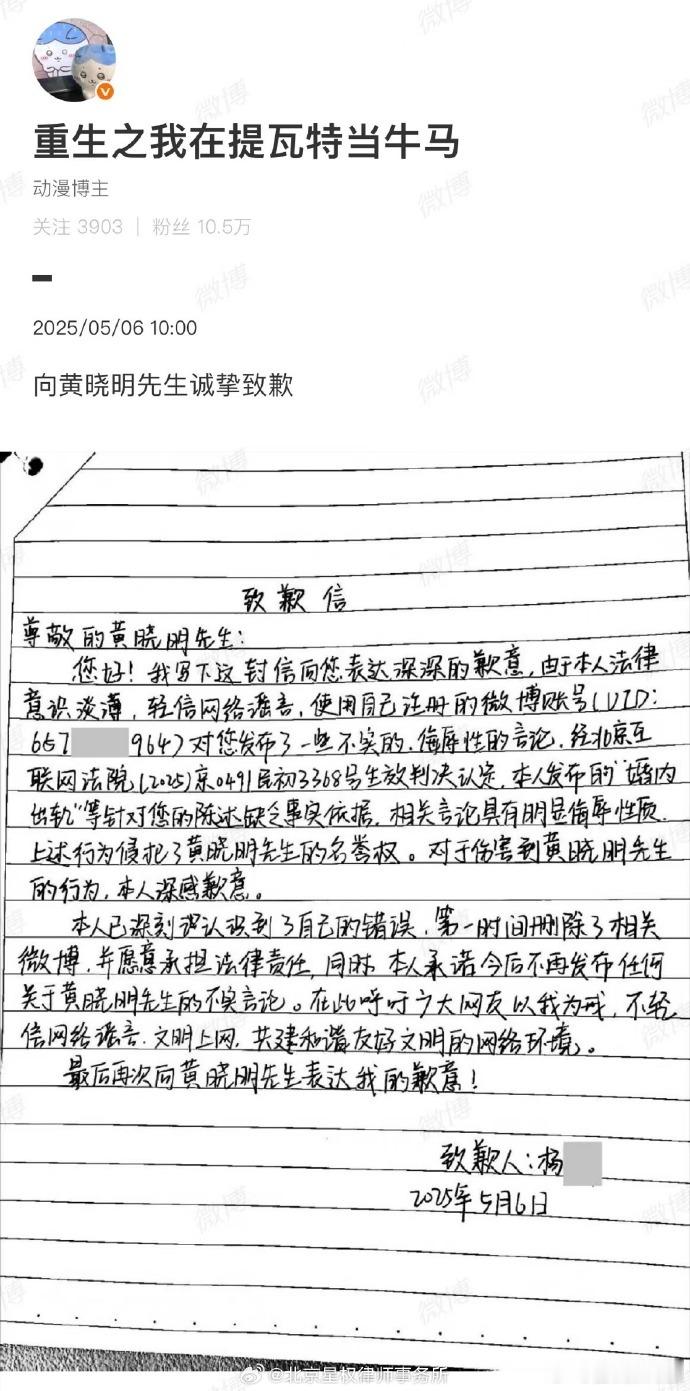 重生之我在提瓦特当牛马
动漫博主
关注 3903 | 粉丝 10.5万
2025/05/06 10:00
向黄晓明先生诚挚致歉
致歉信
尊敬的黄晓明先生:
您好!我写下这封信向您表达深深的歉意,由于本人法律
意识淡薄,轻信网络谣言,使用自己注册的微博账号(UID:
657 964)对您发布了一些不实的、侮辱性的言论,经北京互
联网法院(2025)京0491民初3368号生效判决认定,本人发布的"婚内
出轨"等针对您的陈述缺乏事实依据,相关言论具有明显侮辱性质,
上述行为侵犯了黄晓明先生的名誉权。对于伤害到黄晓明先生
的行为,本人深感歉意。
本人已深刻认识到了自己的错误,第一时间删除了相关
微博,并愿意承担法律责任,同时,本人承诺今后不再发布任何
关于黄晓明先生的不实言论。在此呼吁广大网友以我为戒,不轻
信网络谣言、文明上网,共建和谐友好文明的网络环境。
最后再次向黄晓明先生表达我的歉意!
致歉人:杨
2025年5月6日
@北京星权律师事务所
微博